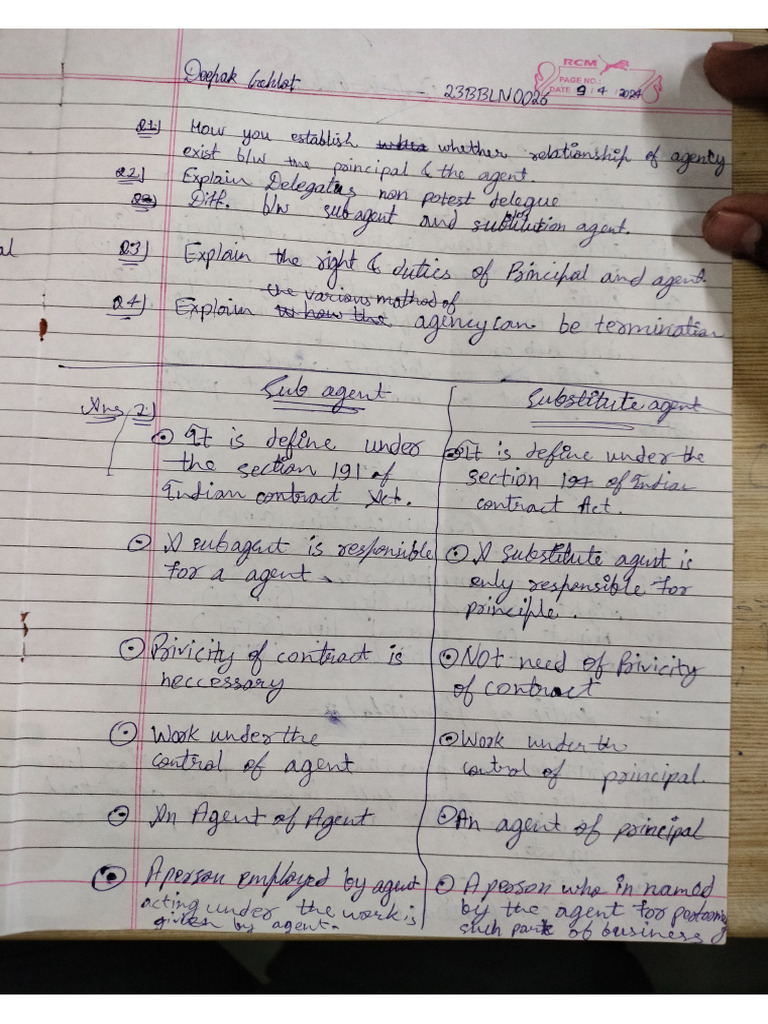 RCM
PAGE NO.:
DATE 9/4/2024
Deepak Gehlot - 23BBLN0026
Q1.) How you establish whether relationship of agency
exist b/w the principal & the agent.
Q2.) Explain Delegatus non potest delegue
Diff. b/w subagent and substitution agent.
Q3) Explain the right & duties of Principal and agent.
the various method of
Q4) Explain to how the agency can be termination
al
Ans 2.)
Sub agent
⊙ It is define under
the section 191 of
Indian contract Act.
⊙ A subagent is responsible
for a agent.
⊙ Privicity of contract is
neccessary
⊙ Work under the
control of agent
⊙ An Agent of Agent
⊙ A person employed by agent
acting under the work is
given by agent.
Substitute agent
⊙ It is define under the
section 194 of Indian
contract Act.
⊙ A substitute agent is
only responsible for
principle.
⊙ NOt need of Privicity
of contract
⊙ Work under th
control of principal.
⊙ An agent of principal
⊙ A person who in named
by the agent for
such part of business